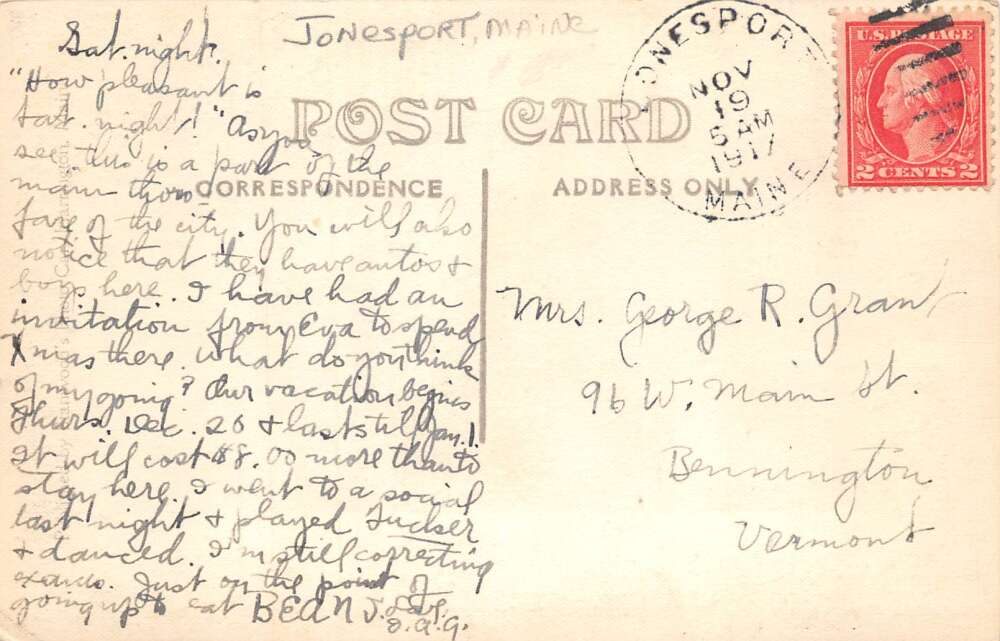 JONESPORT, MAINE
JONESPORT
NOV
19
5 AM
1917
MAINE
U.S. POSTAGE
2 CENTS 2
POST CARD
CORRESPONDENCE
ADDRESS ONLY
Sat. night.
"How pleasant is
Sat. night!" As you
see this is a part of the
main thoro-
fare of the city. You will also
notice that they have autos &
boys here. I have had an
invitation from Eva to spend
Xmas there. What do you think
of my going? Our vacation begins
Thurs. Dec. 20 & lasts till Jan. 1.
It will cost $8.00 more than to
stay here. I went to a social
last night & played Tucker
& danced. I'm still correcting
exams. Just on the point of
going up to eat BEANS. Love,
Mrs. George R. Grant
96 W. Main St.
Bennington
Vermont